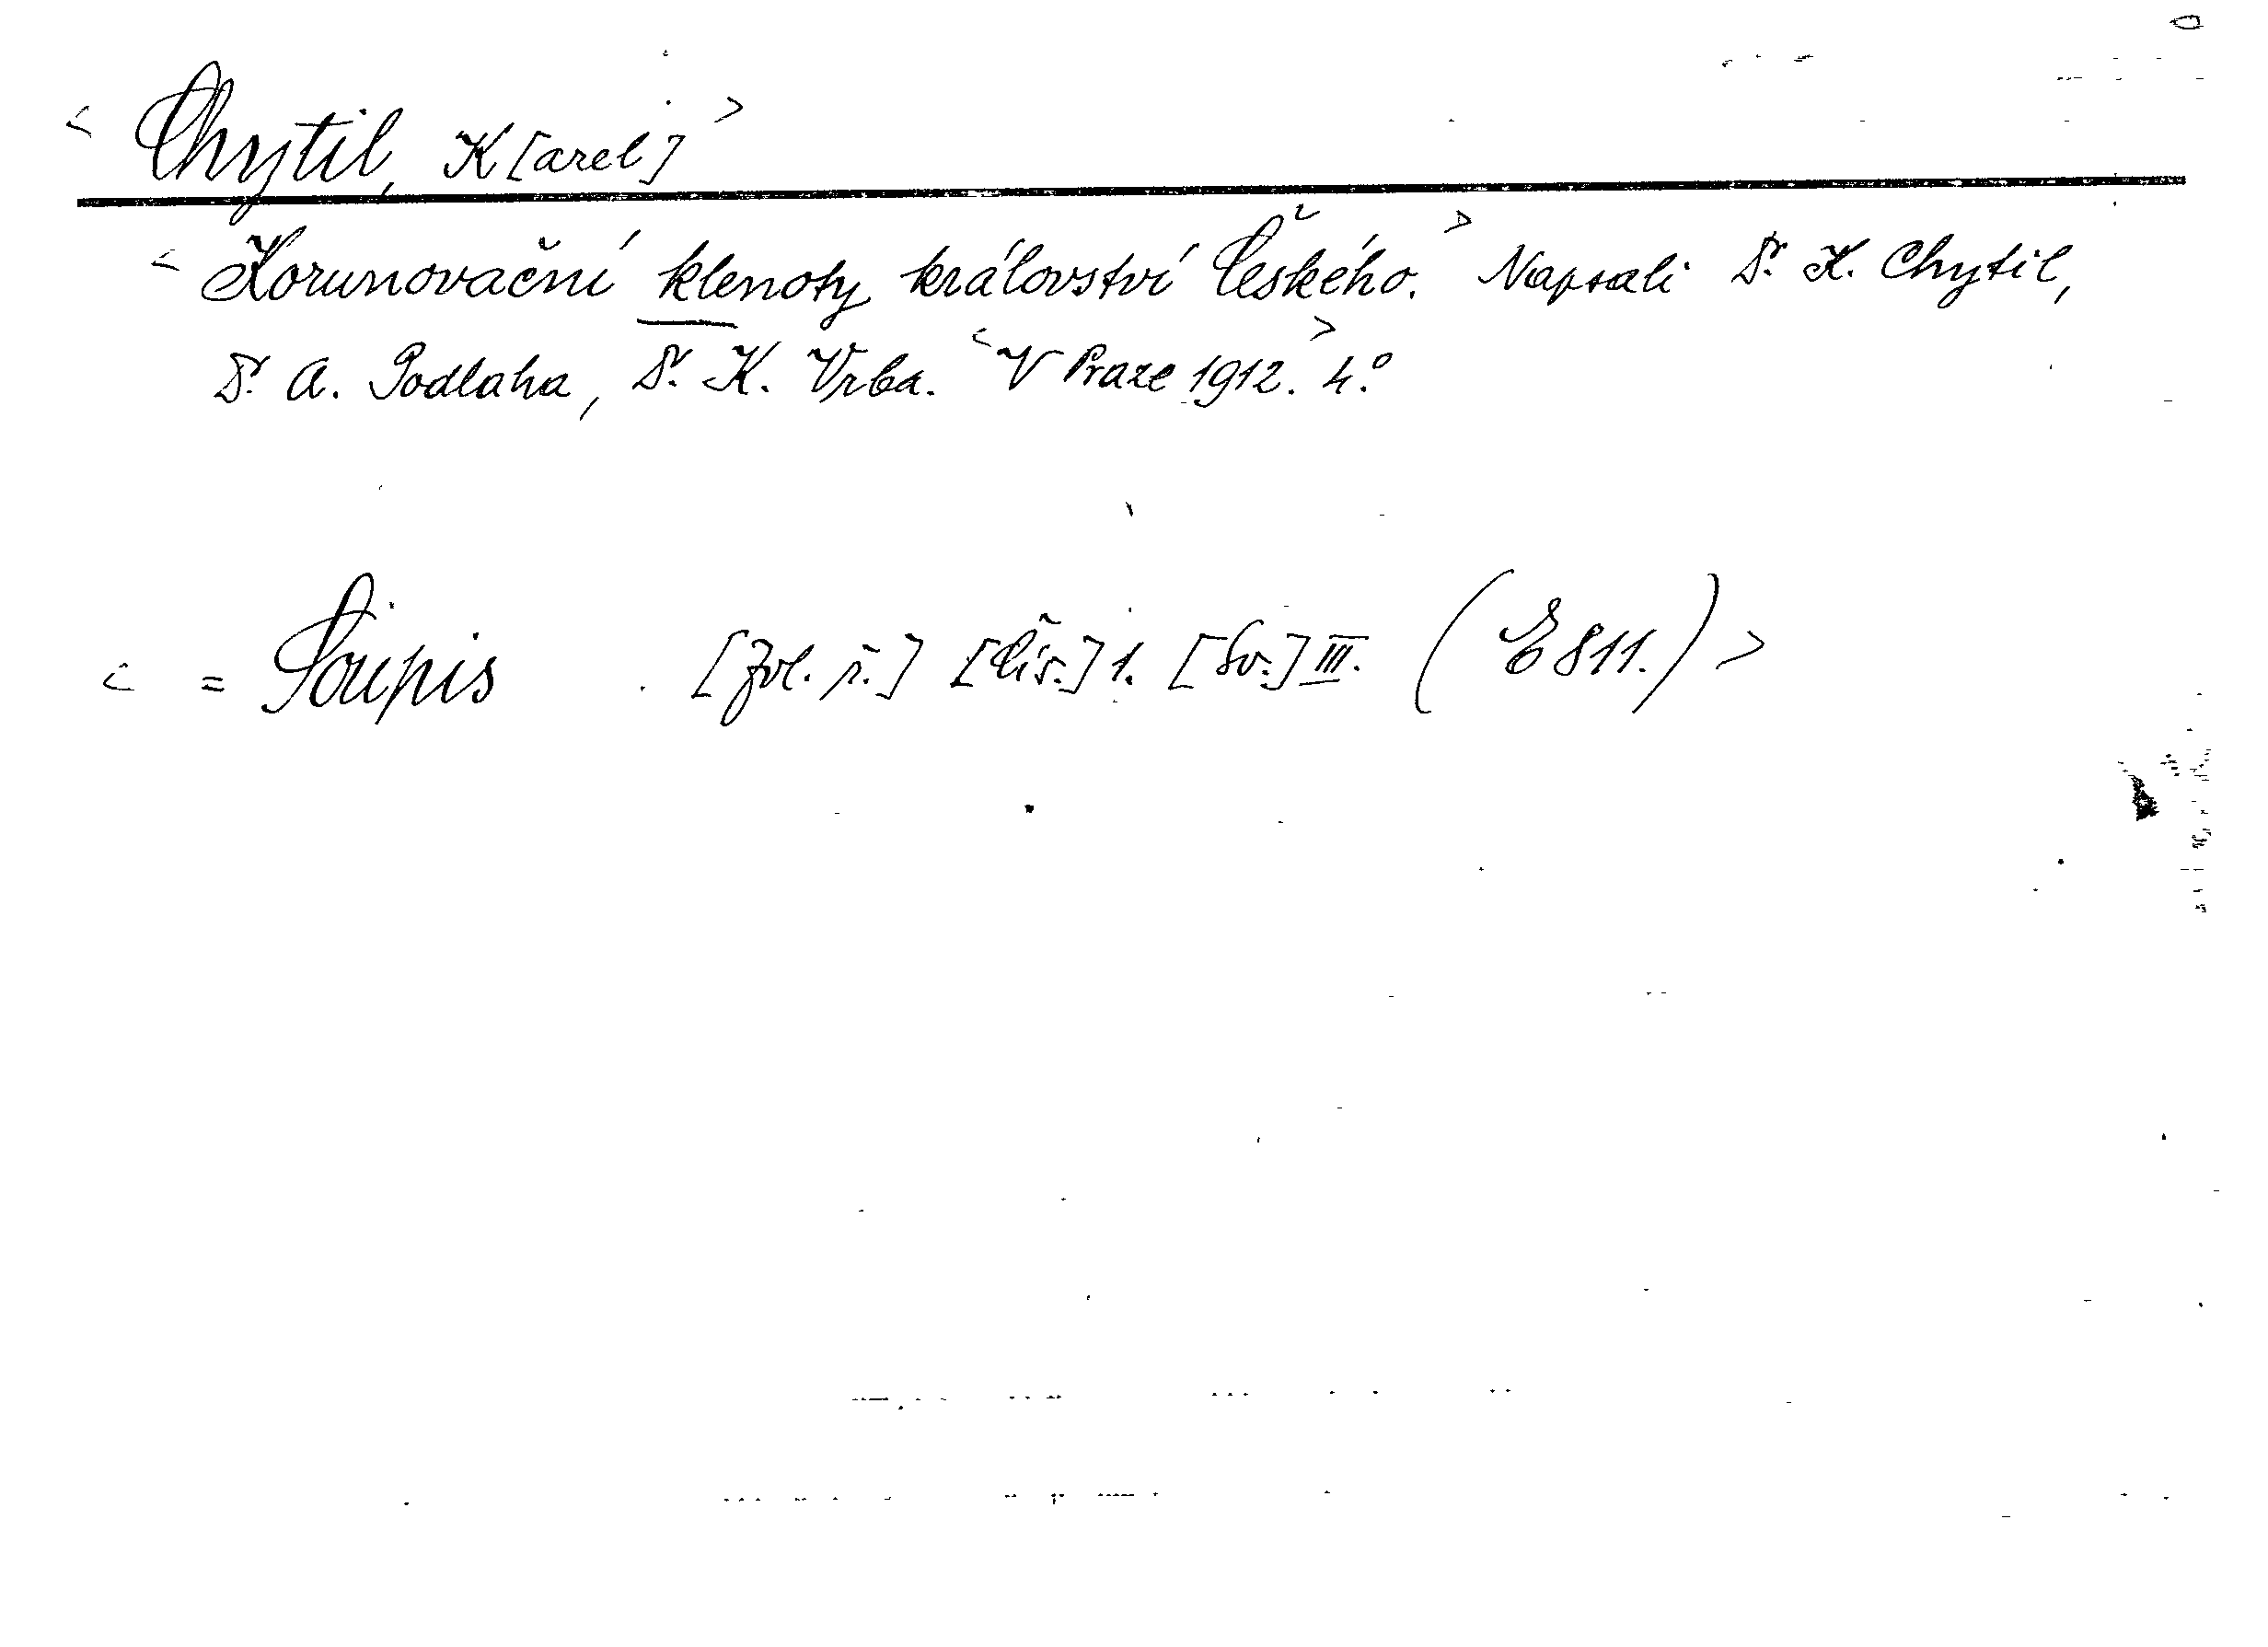 < Chytil, K[arel] >
< Korunovační klenoty království Českého. > Napsali Dr. K. Chytil,
Dr. A. Podlaha, Dr. K. Vrba. < V Praze 1912. > 4.°
< = Soupis . [Zvl. ř.] [Čís.] 1. [Sv.] III. (E 811.) >